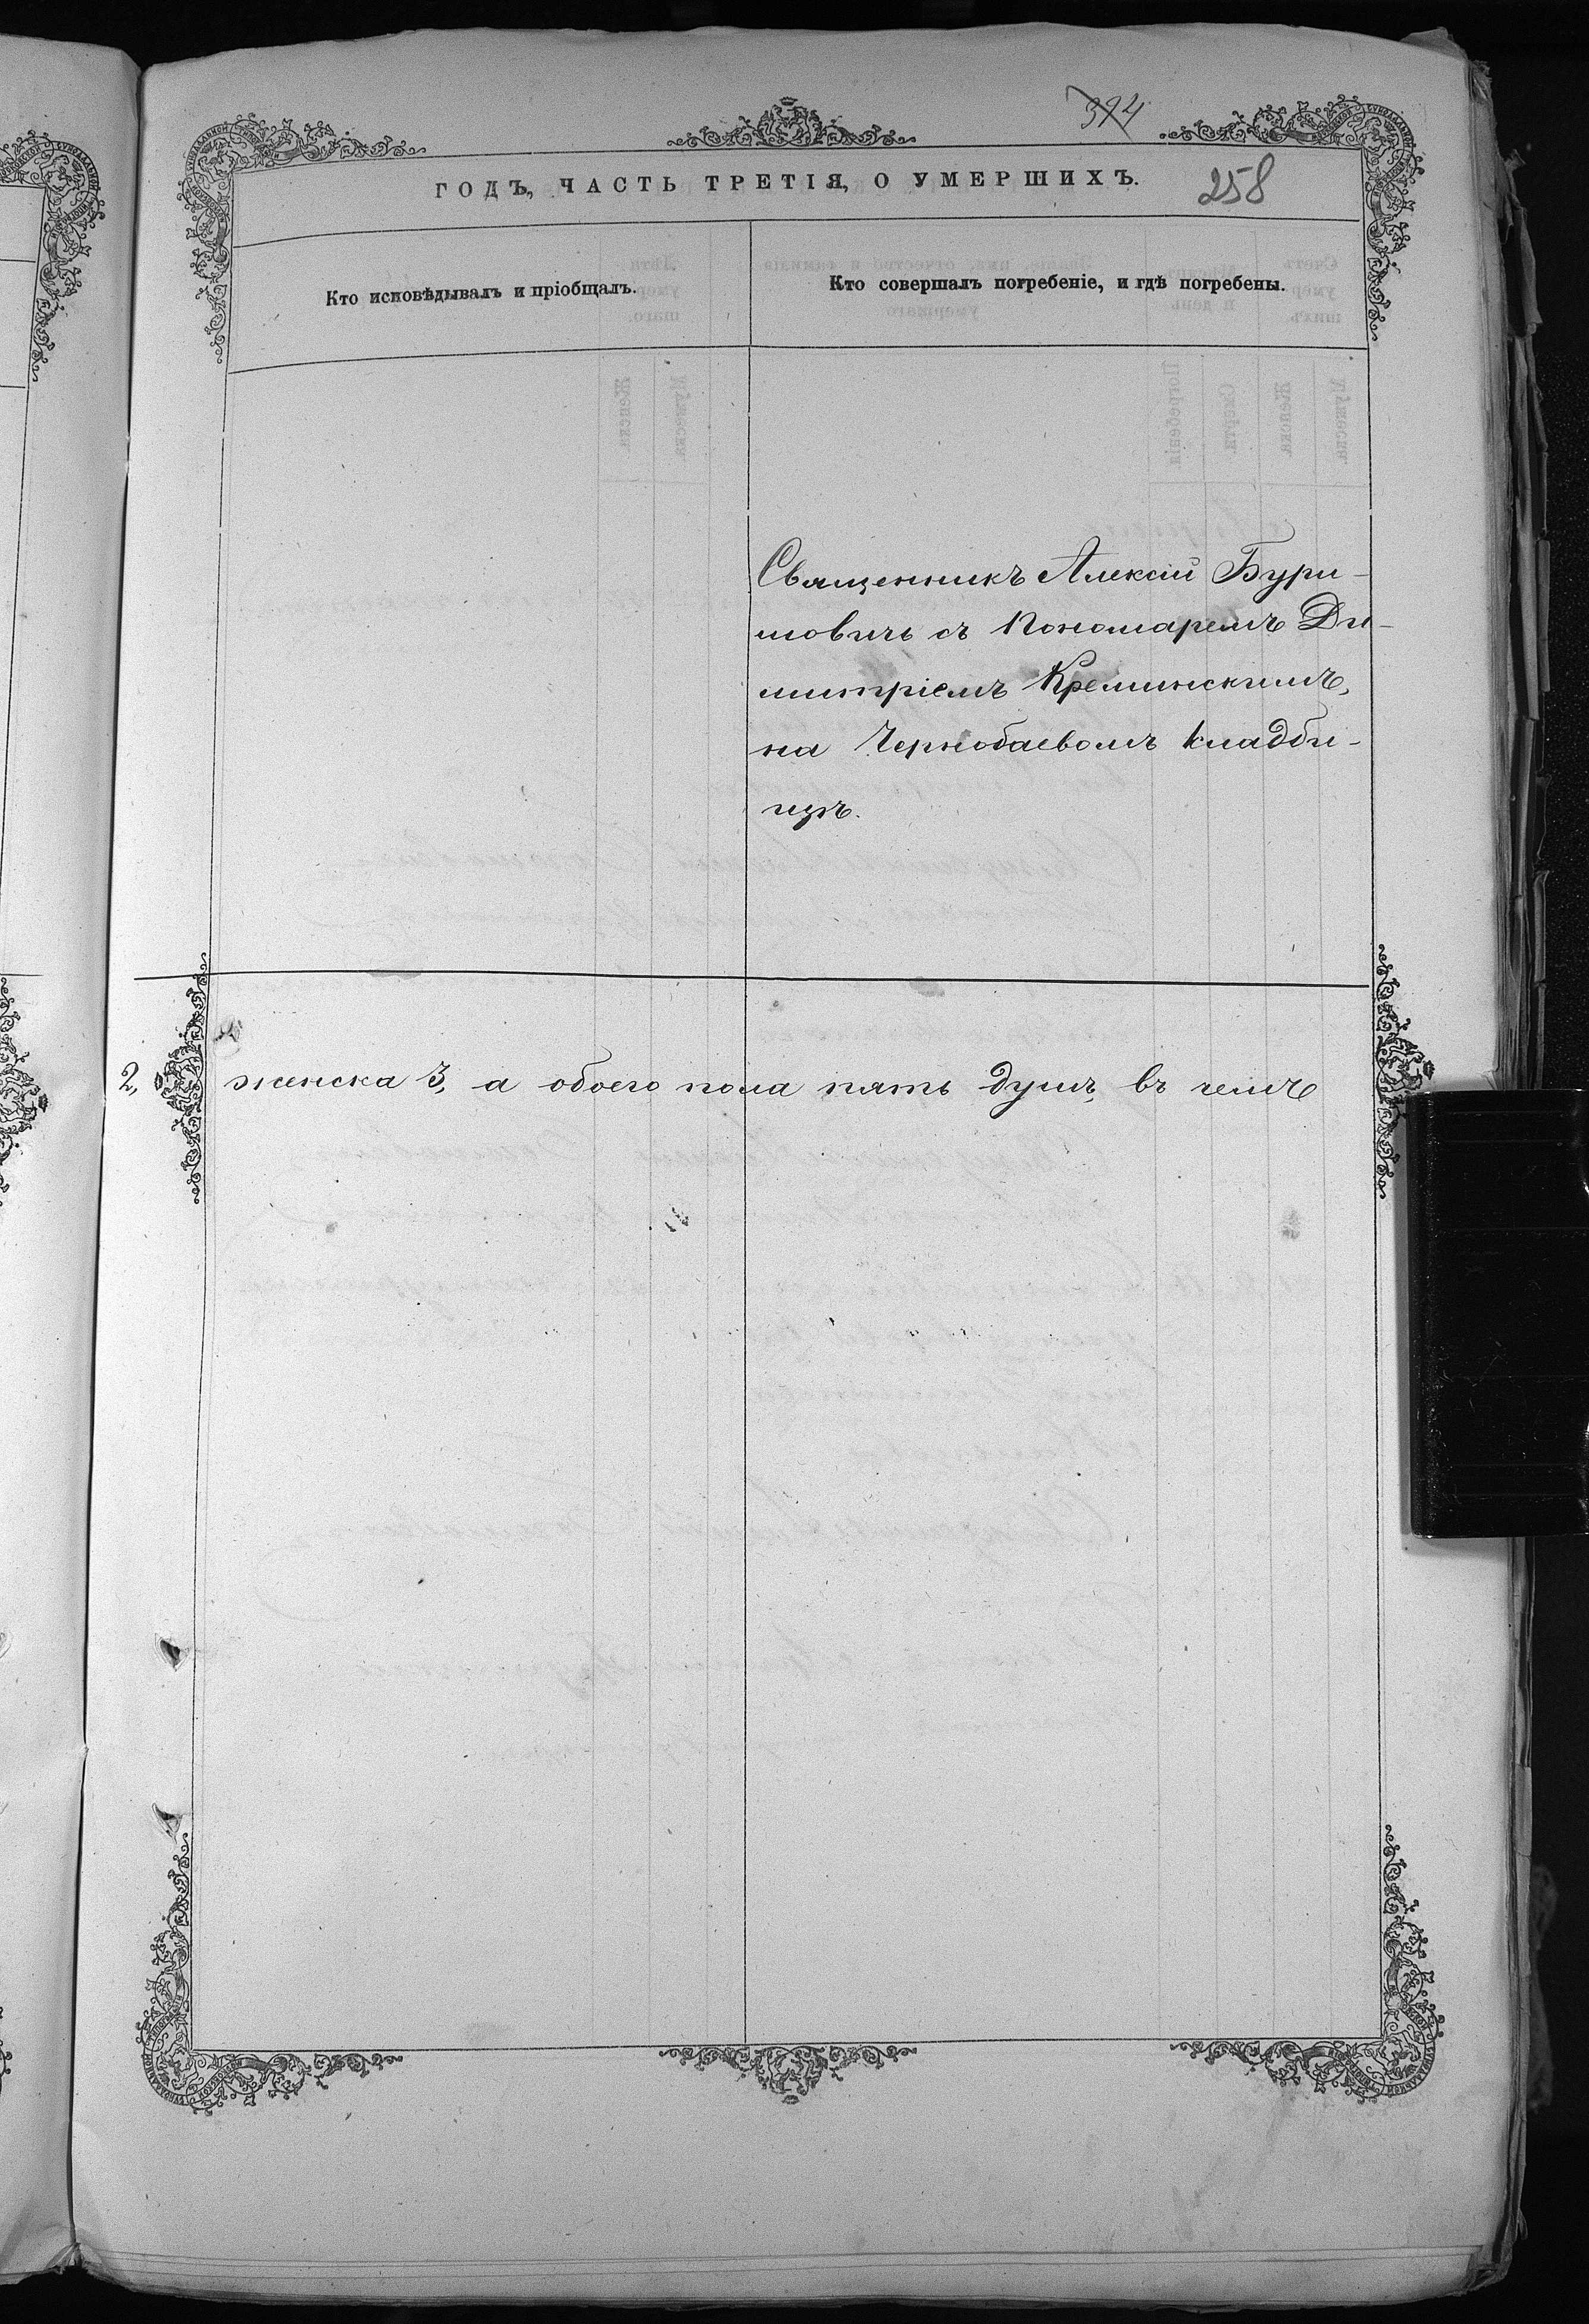 394
ГОДЪ, ЧАСТЬ ТРЕТІЯ, О УМЕРШИХЪ.
258
Кто исповѣдывалъ и пріобщалъ.
Кто совершалъ погребеніе, и гдѣ погребены.
Священникъ Алексій Бури-
мовичь съ Пономаремъ Ди-
митріемъ Креминскимъ,
на Чернобаевомъ кладби-
щѣ.
2, женска 3, а обоего пола пять душъ, въ чемъ